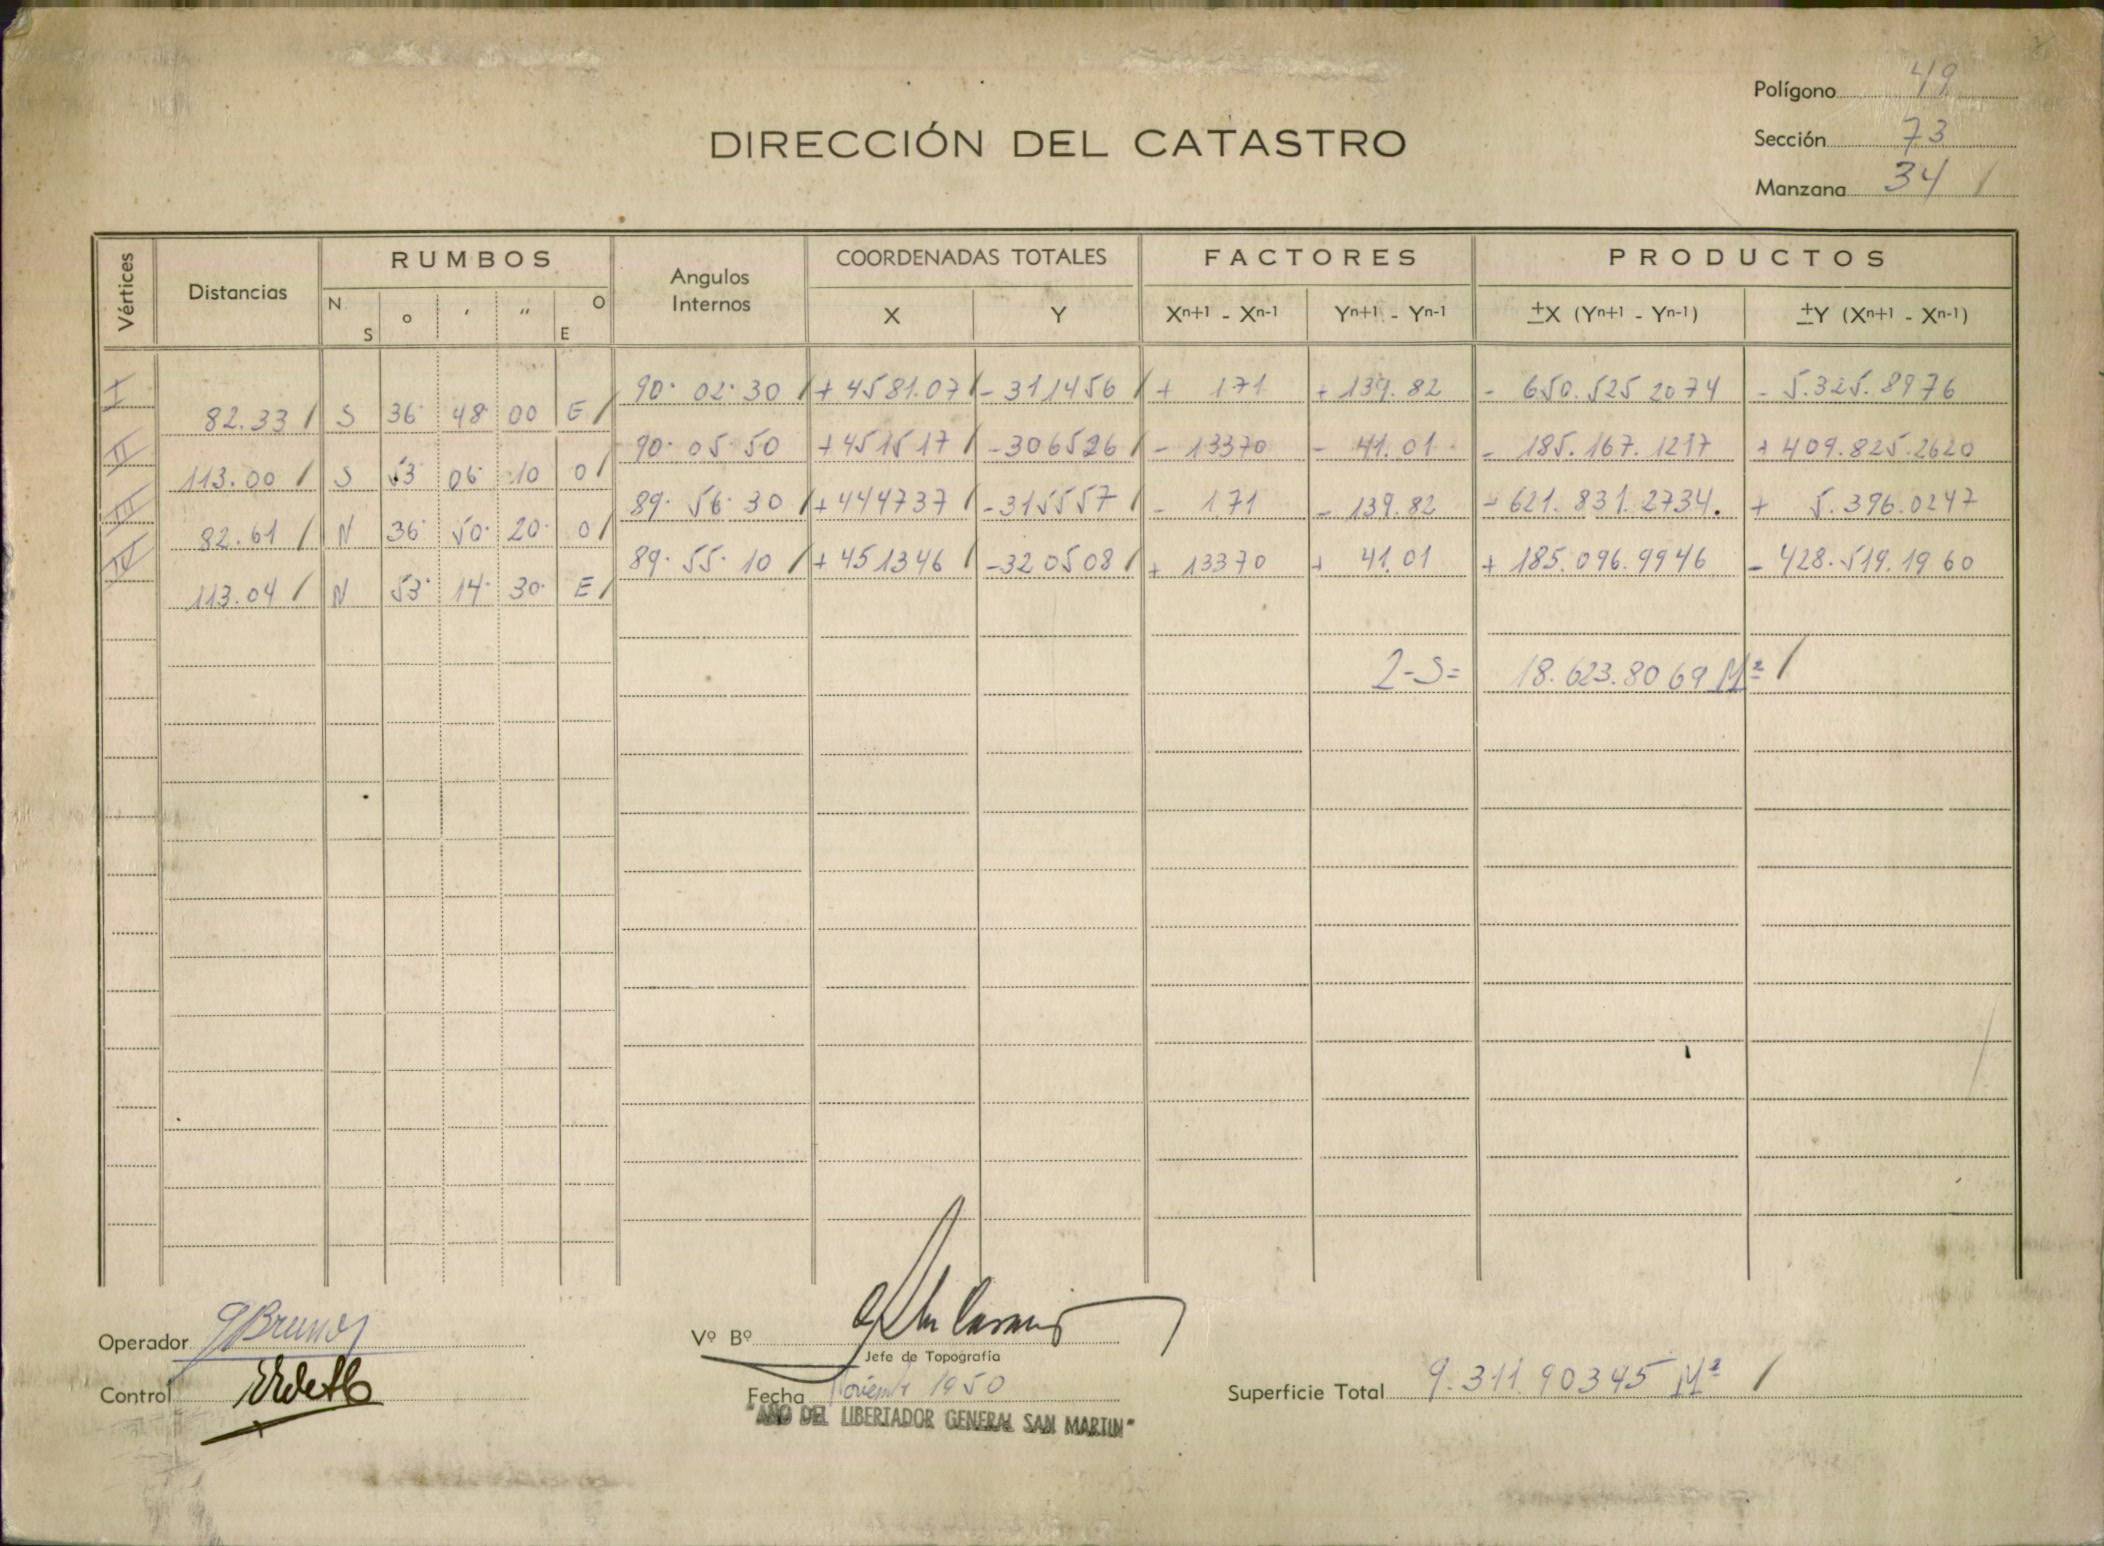 Polígono 49
DIRECCIÓN DEL CATASTRO
Sección 73
Manzana 34 /
Vértices Distancias RUMBOS Angulos Internos COORDENADAS TOTALES FACTORES PRODUCTOS
N S o ′ ″ E O X Y Xn+1 - Xn-1 Yn+1 - Yn-1 ±X (Yn+1 - Yn-1) ±Y (Xn+1 - Xn-1)
I 90· 02· 30 / + 4581.07 / - 311456 / + 171 + 139.82 - 650.525 2074 - 5.325.8976
82.33 / S 36· 48· 00 E /
II 90· 05· 50 + 451517 / - 306526 / - 13370 - 41.01 - 185.167.1217 + 409.825.2620
113.00 / S 53· 06· 10 O /
III 89· 56· 30 / + 444737 / - 315557 / - 171 - 139.82 + 621.831.2734. + 5.396.0247
82.61 / N 36· 50· 20· O /
IV 89· 55· 10 / + 451346 / - 320508 / + 13370 + 41.01 + 185.096.9946 - 428.519.1960
113.04 / N 53· 14· 30· E /
2-S= 18.623.8069 M² /
Operador
Vº Bº
Jefe de Topografía
Control
Fecha 1950
Superficie Total 9.311.90345 M² /
"AÑO DEL LIBERTADOR GENERAL SAN MARTIN"